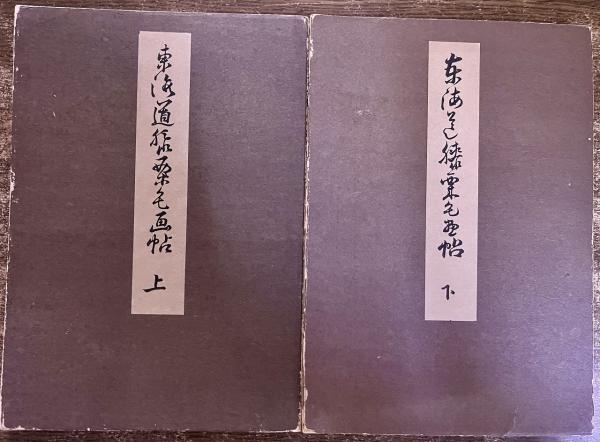 東海道膝栗毛画帖 上
東海道膝栗毛画帖 下